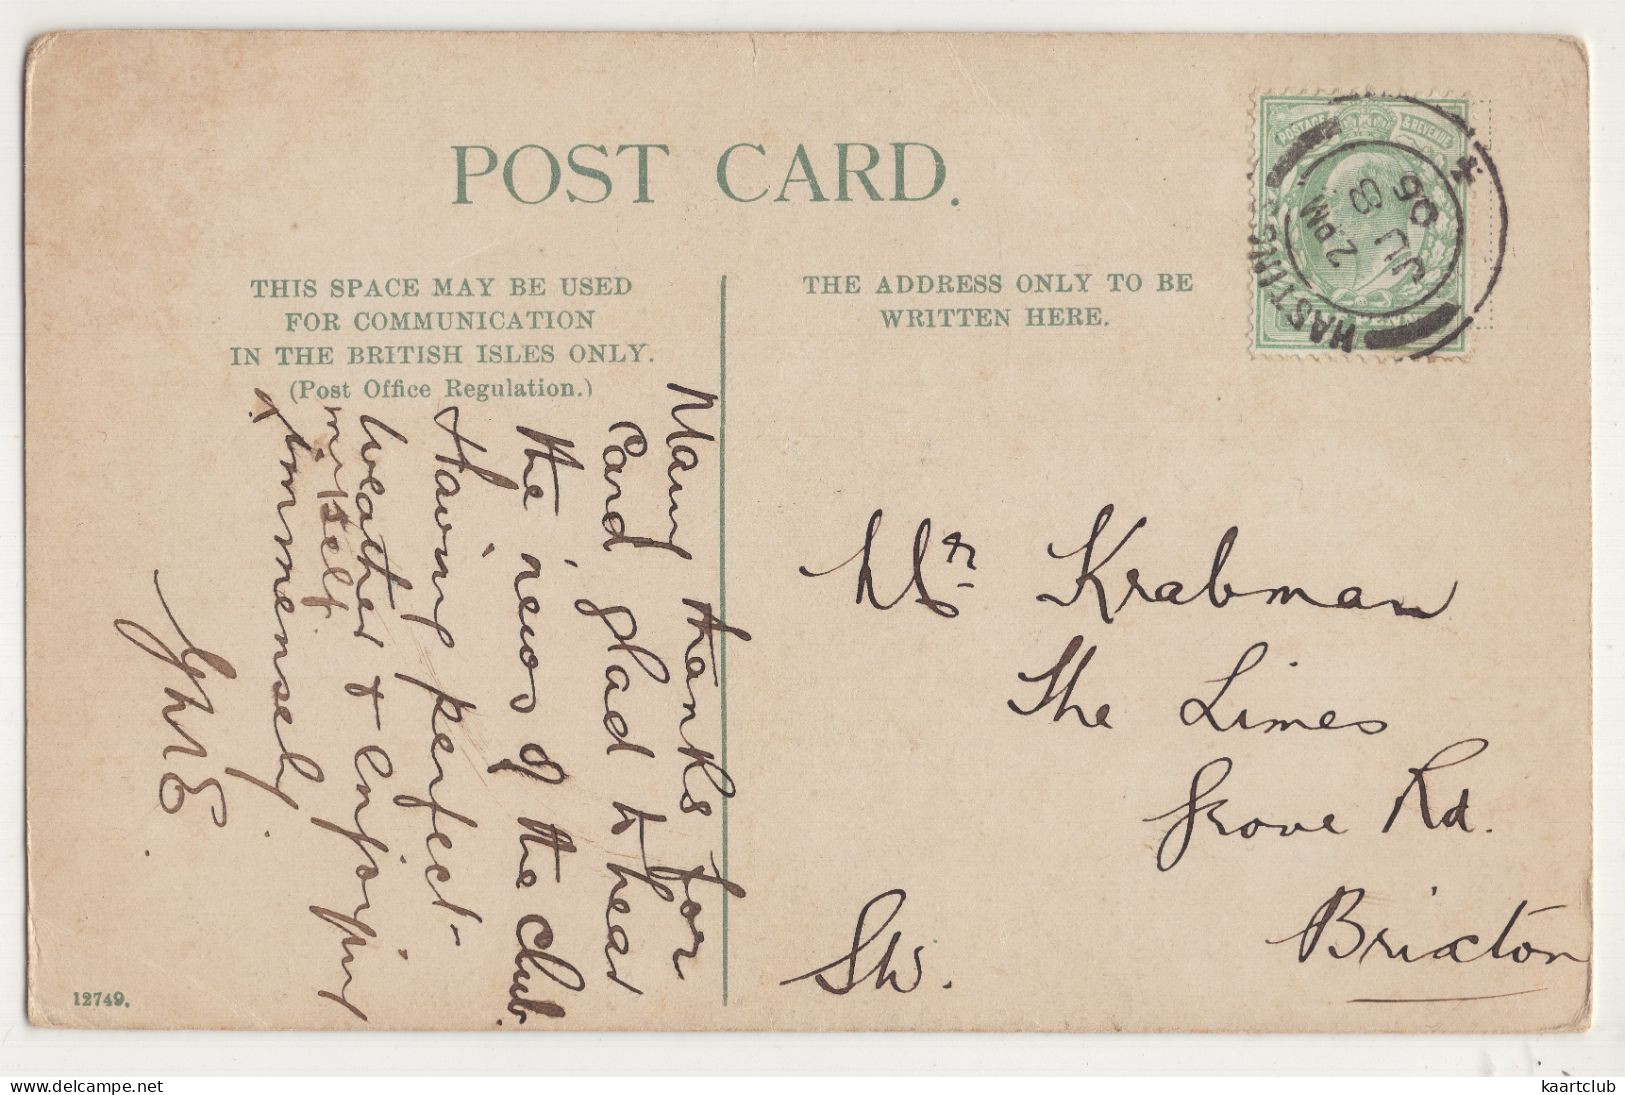 POST CARD.
THIS SPACE MAY BE USED
FOR COMMUNICATION
IN THE BRITISH ISLES ONLY.
(Post Office Regulation.)
THE ADDRESS ONLY TO BE
WRITTEN HERE.
POSTAGE & REVENUE
HASTINGS
2 PM
JU 8
06
Many thanks for
Card glad to hear
the news of the Club.
Having perfect
weather & Enjoying
myself
immensely
Mr Krabman
The Limes
Grove Rd.
Brixton
SW.
12749.
delcampe.net
kaartclub